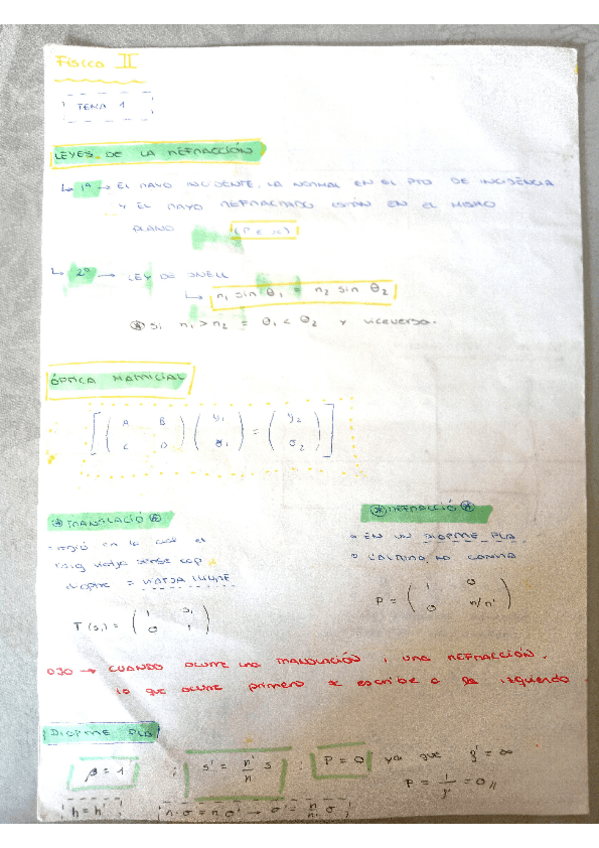 Física II
TEMA 1
LEYES DE LA REFRACCIÓN
↳ 1ª → EL RAYO INCIDENTE, LA NORMAL EN EL PTO DE INCIDÉNCIA
Y EL RAYO REFRACTADO ESTÁN EN EL MISMO
PLANO
↳ 2ª → LEY DE SNELL
↳ n₁ sin θ₁ = n₂ sin θ₂
⊛ si n₁ > n₂ = θ₁ < θ₂ y viceversa.
ÓPTICA MATRICIAL
[ ( A B ; C D ) ( y₁ ; σ₁ ) = ( y₂ ; σ₂ ) ]
⊛ TRANSLACIÓ ⊛
regió en la cual el
raig viatja sense cap
dioptre = VIATJA LLIURE
T(s₁) = ( 1 s₁ ; 0 1 )
⊛ REFRACCIÓ ⊛
EN UN DIOPTRE PLA
L'ALTURA NO CANVIA
P = ( 1 0 ; 0 n/n' )
OJO → CUANDO OCURRE UNA TRANSLACIÓN y UNA REFRACCIÓN,
lo que ocurre primero se escribe a la izquierda
DIOPTRE PLA
β = 1 ; s' = n'/n s ; P = 0 ya que f' = ∞
P = 1/f' = 0 //
h = h' ; n·σ = n'σ' → σ' = n/n' σ